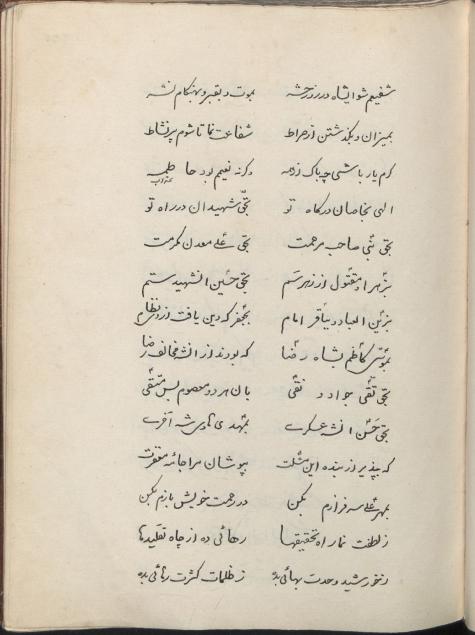 شفیعم شو ایشاه در روز حشر بموت و بقبر و بهنگام نشر
بمیزان و بگذشتن از صراط شفاعت نما تا شوم پر نشاط
کرم یار باشی چه باک از همه وگرنه نعیم بود حاطمه
الهی بخاصان درگاه تو بحق شهیدان در راه تو
بحق نبی صاحب مرحمت بحق علی معدن مکرمت
بزهرا و مقتول از زهر سم بحق حسین آن شهید ستم
بزین العباد و بباقر امام بجعفر که دین یافت از او نظام
بموسی کاظم بشاه رضا که بودند از آنشه مخالف رضا
بحق تقی جواد و نقی بآن هر دو معصوم بس متقی
بحق حسن آنشه عسکری بمهدی هادی شه
که بپذیر از بنده این مسئلت بپوشان مرا جامه مغفرت
بمهر علی سرفرازم بکن در رحمت خویش بازم بکن
ز لطفت نما راه تحقیقها رهائی ده از چاه تقلیدها
ز خورشید وحدت بهائی بده ز ظلمات کثرت رهائی بده